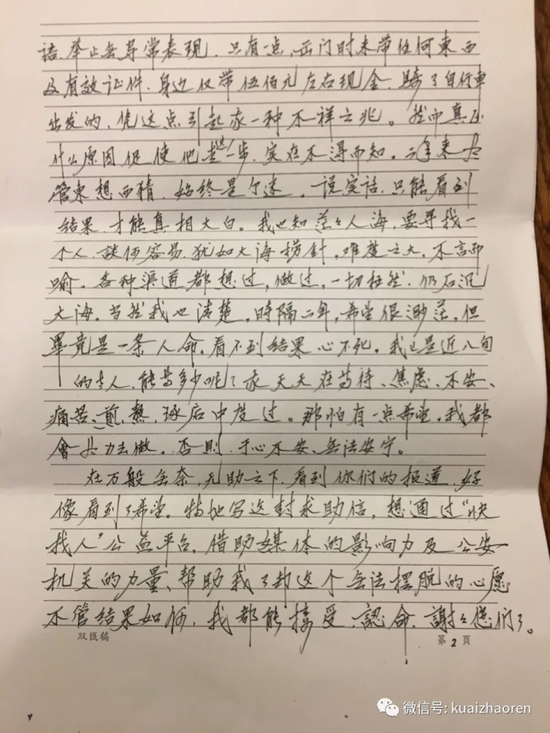 语、举止无异常表现，只有一点，出门时未带任何東西
及有效证件，身边仅带伍佰元左右现金，骑了自行車
出发的，凭这点引起家一种不祥之兆。然而真
什么原因促使他走这一步，实在不得而知。二年来尽
管東想西猜，始终是个迷。说实话，只能看到
结果，才能真相大白。我也知茫茫人海，要寻找一
个人，谈何容易，犹如大海捞針，难度之大，不言而
喻。各种渠道都想过，做过，一切枉然，仍石沉
大海。当然我也清楚，時隔二年，希望很渺茫，但
畢竟是一条人命，看不到结果心不死。我已是近八旬
的老人，能等多少呢？家天天在等待、焦虑、不安、
痛苦、煎熬、中度过。那怕有一点希望，我都
會尽力去做。否则，于心不安、无法安宁。
在万般无奈，无助之下，看到你们的报道，好
像看到了希望。特地写这封求助信，想通过“快
找人”公益平台，借助媒体的影响力及公安
机关的力量，帮助我了却这个无法摆脱的心愿
不管结果如何，我都能接受、認命，謝謝您们了。
双线稿 第2頁
微信号: kuaizhaoren